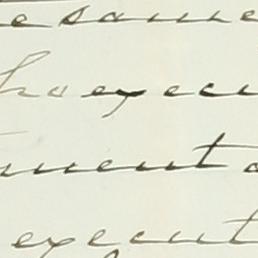 e same
ho execu
ument a
execut